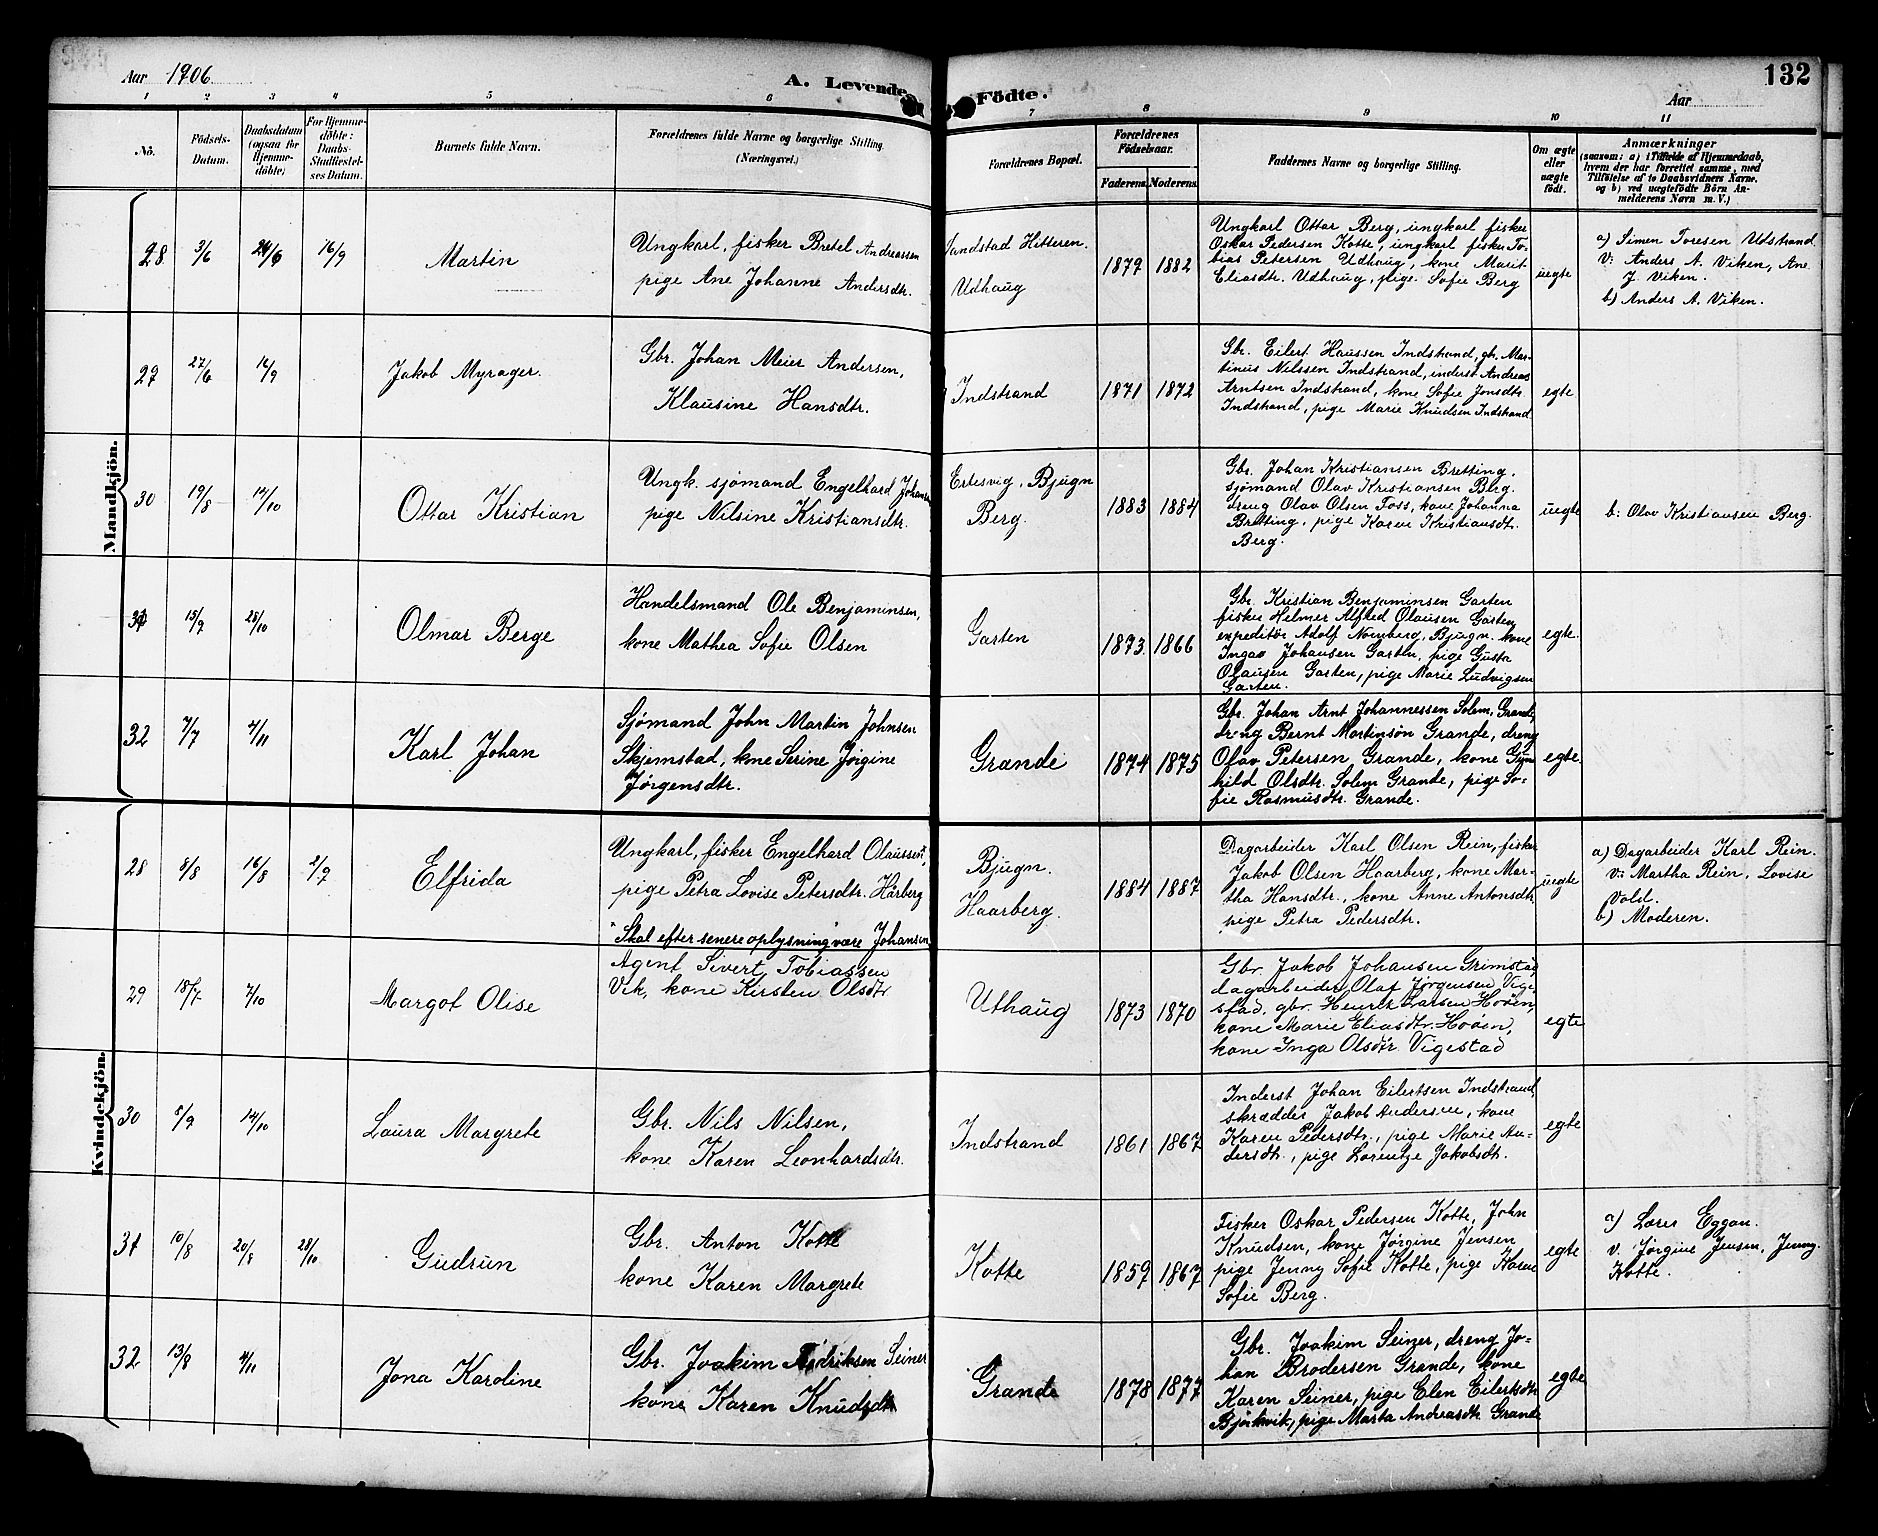 132
Aar 1906. A. Levende Födte. Aar
1 2 3 4 5 6 7 8 9 10 11
No.
Födsels-
Datum.
Daabsdatum
(ogsaa for
Hjemme-
döbte)
For Hjemme-
döbte:
Daabs-
Stadfæstel-
ses Datum.
Barnets fulde Navn.
Forældrenes fulde Navne og borgerlige Stilling.
(Næringsvei.)
Forældrenes Bopæl.
Forældrenes
Födselsaar.
Faderens. Moderens.
Faddernes Navne og borgerlige Stilling.
Om ægte
eller
uægte
födt.
Anmærkninger
(saasom: a) i Tilfælde af Hjemmedaab,
hvem der har forrettet samme, med
Tilföielse af to Daabsvidners Navne,
og b) ved uægtefödte Börn An-
melderens Navn m. V.)
Mandkjön.
28 3/6 24/6 16/9 Martin
Ungkarl, fisker Bretel Andreassen
pige Ane Johanne Andersdtr.
Sandstad Hitteren.
Udhaug
1879 1882
Ungkarl Ottar Berg, ungkarl fisker
Oskar Pedersen Kotte, ungkarl fisker To-
bias Petersen Udhaug, kone Marit
Eliasdtr. Udhaug, pige Sofie Berg
uegte
a) Simen Toresen Udstrand
V: Anders A. Viken, Ane
J. Viken.
b) Anders A. Viken.
29 27/6 16/9 Jakob Myrager.
Gbr. Johan Meier Andersen,
Klausine Hansdtr.
Indstrand
1871 1872
Gbr. Eilert Haussen Indstrand, gbr. Mar-
tinus Nilssen Indstrand, inderst Andreas
Arntsen Indstrand, kone Sofie Jonsdtr.
Indstrand, pige Marie Knudsen Indstrand
egte
30 19/8 14/10 Ottar Kristian
Ungk. sjømand Engelhard Johansen
pige Nilsine Kristiansdtr.
Ertesvig, Bjugn
Berg.
1883 1884
Gbr. Johan Kristiansen Bretting,
sjømand Olav Kristiansen Berg.
dreng Olav Olsen Foss, kone Johanna
Bretting, pige Karen Kristiansdtr.
Berg.
uegte
b: Olav Kristiansen Berg.
31 15/9 28/10 Olmar Berge
Handelsmand Ole Benjaminsen,
kone Mathea Sofie Olsen
Garten
1873 1866
Gbr. Kristian Benjaminsen Garten
fisker Helmer Alfred Olausen Garten,
expeditør Adolf Nomberg, Bjugn. kone
Inga Johansen Garten, pige Gusta
Olausen Garten, pige Marie Ludvigsen
Garten.
egte.
32 7/7 4/11 Karl Johan
Sjømand John Martin Johnsen
Skjemstad, kone Serine Jørgine
Jørgensdtr.
Grande
1874 1875
Gbr. Johan Arnt Johannessen Solem, Grande,
dreng Bernt Martinsøn Grande, dreng
Olav Petersen Grande, kone Gun-
hild Olsdtr. Solem Grande, pige So-
fie Rasmusdtr. Grande.
egte.
Kvindekjön.
28 8/8 16/8 2/9 Elfrida
Ungkarl, fisker Engelhard Olaussen,
pige Petra Lovise Petersdtr. Hårberg
"Skal efter senere oplysning være Johansen
Bjugn.
Haarberg.
1884 1887
Dagarbeider Karl Olsen Rein, fisker
Jakob Olsen Haarberg, kone Mar-
tha Hansdtr., kone Anne Antonsdtr,
pige Petra Pedersdtr.
uegte
a) Dagarbeider Karl Rein.
V: Martha Rein, Lovise
Vold.
b) Moderen.
29 18/7 7/10 Margot Olise
Agent Sivert Tobiassen
Vik, kone Kirsten Olsdtr
Uthaug
1873 1870
Gbr. Jakob Johansen Grimstad
dagarbeider Olaf Jørgensen Vige-
stad, gbr. Henrik Larsen Hoøen,
kone Marie Eliasdtr. Hoøen,
kone Inga Olsdtr. Vigestad
egte
30 5/9 14/10 Laura Margrete
Gbr. Nils Nilsen,
kone Karen Leonhardsdtr.
Indstrand
1861 1867
Inderst Johan Eilertsen Indstrand,
skrædder Jakob Andersen, kone
Karen Pedersdtr., pige Marie An-
dersdtr., pige Lorentze Jakobsdtr.
egte
31 10/8 20/8 28/10 Gudrun
Gbr. Anton Kotte
kone Karen Margrete
Kotte
1859 1867
Fisker Oskar Pedersen Kotte, John
Knudsen, kone Jørgine Jensen
pige Jenny Sofie Kotte, pige Karen
Sofie Berg.
egte
a) Lærer Eggan.
v. Jørgine Jensen, Jenny
Kotte.
32 13/8 4/11 Jona Karoline
Gbr. Joakim Fredriksen Seiner
kone Karen Knudsdtr
Grande
1878 1877
Gbr. Joakim Seiner, dreng Jo-
han Brodersen Grande, kone
Karen Seiner, pige Elen Eilertsdtr
Bjørkvik, pige Marta Andreasdtr. Grande
egte